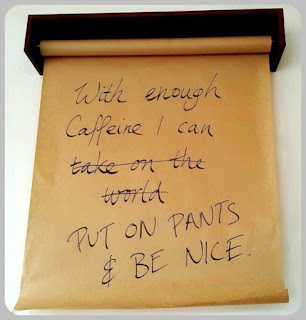 With enough
Caffeine I can
take on the
world
PUT ON PANTS
& BE NICE.